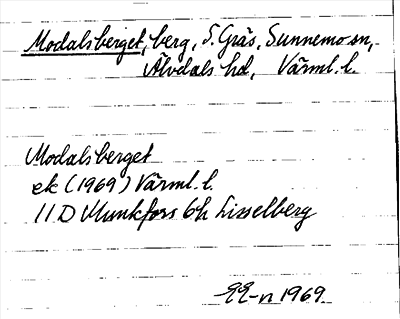 Modalsberget, berg, S. Gräs, Sunnemo sn,
Älvdals hd, Värml. l.
Modalsberget
ek (1969) Värml. l.
11 D Munkfors 6h Lisselberg
1969